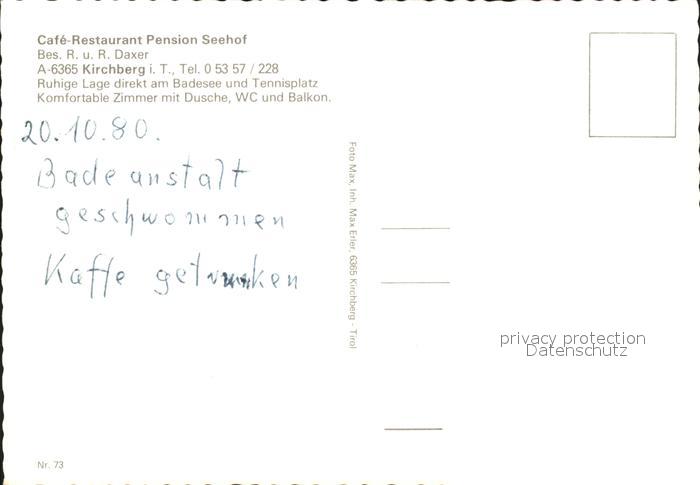 Café-Restaurant Pension Seehof
Bes. R. u. R. Daxer
A-6365 Kirchberg i. T., Tel. 0 53 57 / 228
Ruhige Lage direkt am Badesee und Tennisplatz
Komfortable Zimmer mit Dusche, WC und Balkon.
20.10.80.
Badeanstalt
geschwommen
Kaffe getrunken
Foto Max, Inh. Max Erler, 6365 Kirchberg - Tirol
privacy protection
Datenschutz
Nr. 73